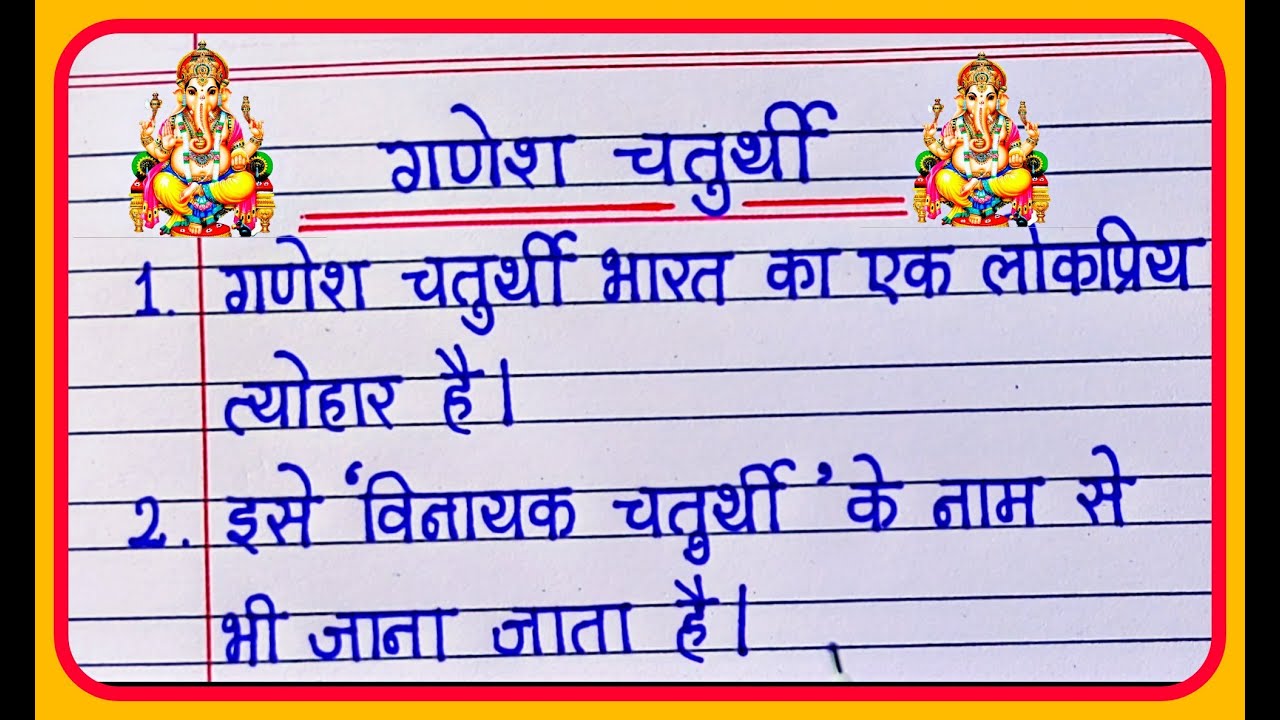 गणेश चतुर्थी
1. गणेश चतुर्थी भारत का एक लोकप्रिय
त्योहार है।
2. इसे ‘विनायक चतुर्थी’ के नाम से
भी जाना जाता है।